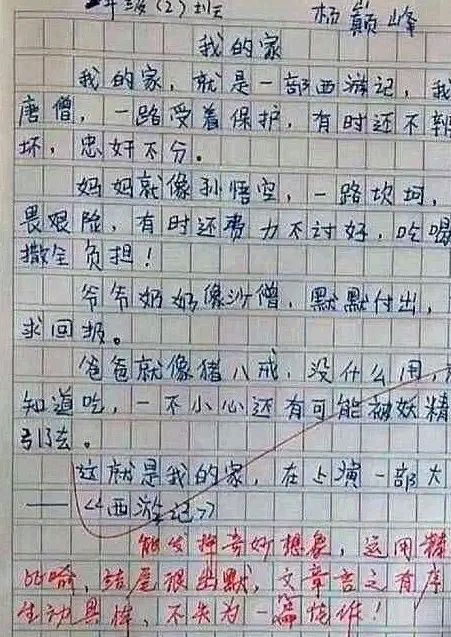 年级(2)班 杨巅峰
我的家
我的家，就是一部西游记，我
唐僧，一路受着保护，有时还不辨
坏，忠奸不分。
妈妈就像孙悟空，一路坎坷，
畏艰险，有时还费力不讨好，吃喝
撒全负担！
爷爷奶奶像沙僧，默默付出，
求回报。
爸爸就像猪八戒，没什么用，
知道吃，一不小心还有可能被妖精
引去。
这就是我的家，在上演一部大
——《西游记》
能发挥奇妙想象，运用精
的喻，结尾很出默，文章言之有序
生动具体，不失为一篇佳作！